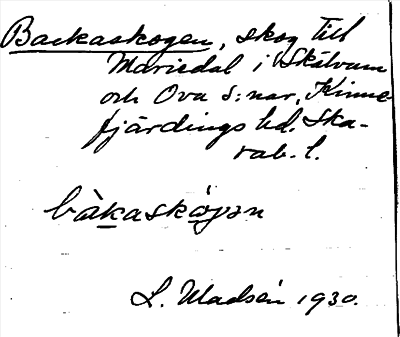 Backaskogen, skog till
Mariedal i Skälvum
och Ova s:nar, Kinne-
fjärdings hd. Ska-
rab. l.
bàkaskógən
L. Madsén 1930.